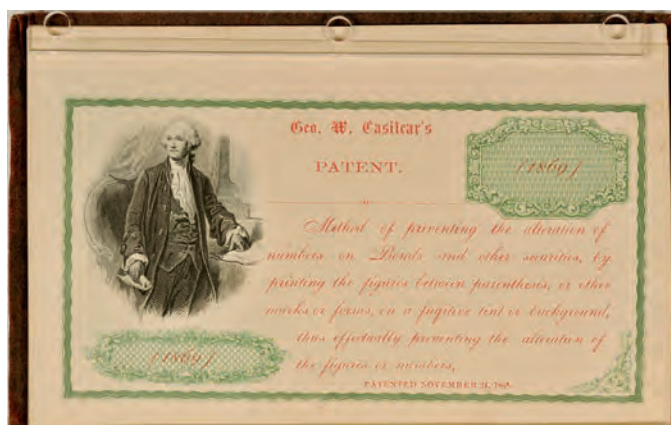 Geo. W. Casilear's
PATENT.
(1869)
Method of preventing the alteration of
numbers on Bonds and other securities, by
printing the figures between parenthesis, or other
marks or forms, on a fugitive tint or background,
thus effectually preventing the alteration of
the figures or numbers,
(1869)
PATENTED NOVEMBER 24,